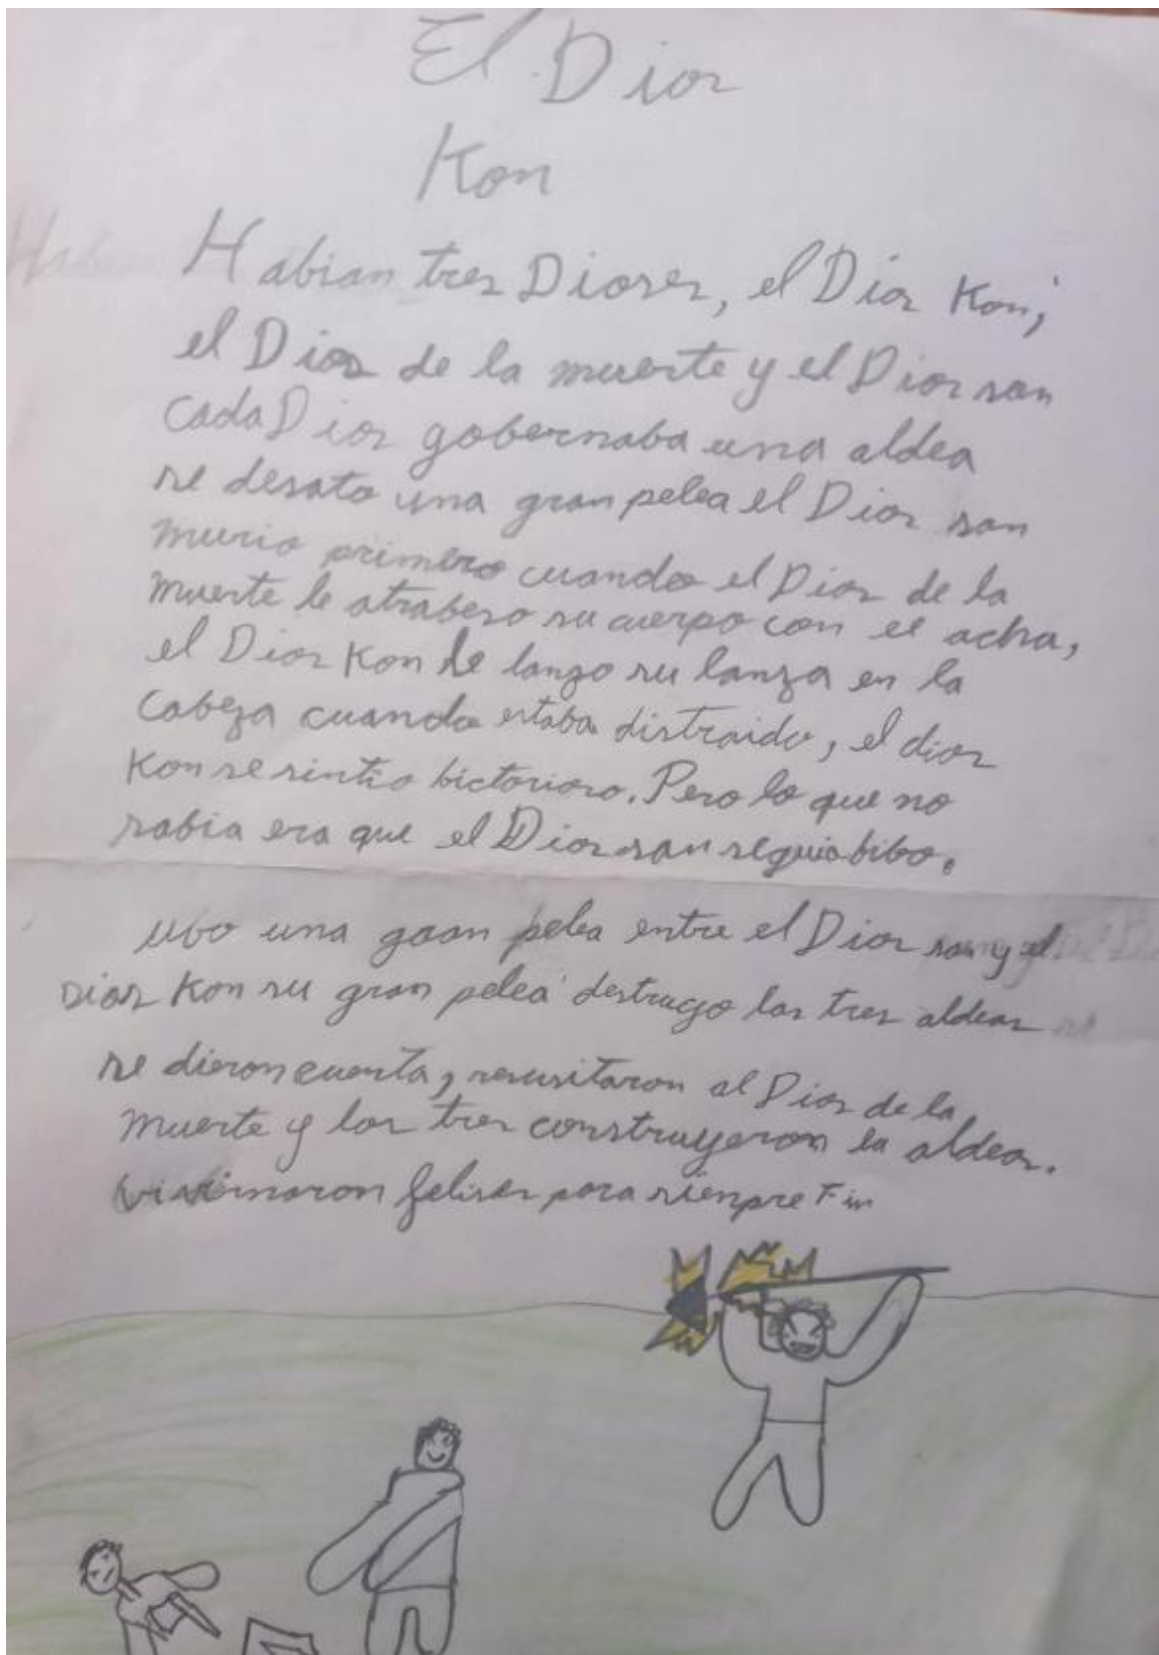 El Dios
Kon
Habian tres Dioses, el Dios Kon,
el Dios de la muerte y el Dios san
cada Dios gobernaba una aldea
se desato una gran pelea el Dios san
murio primero cuando el Dios de la
muerte le atrabeso su cuerpo con el acha,
el Dios Kon le lanzo su lanza en la
cabeza cuando estaba distraido, el dios
Kon se sintio bictorioso. Pero lo que no
sabia era que el Dios san seguia bibo.
ubo una gran pelea entre el Dios san y el
Dios Kon su gran pelea destrugo las tres aldeas
se dieron cuenta, resusitaron al Dios de la
muerte y los tres construyeron la aldea.
felises para sienpre Fin